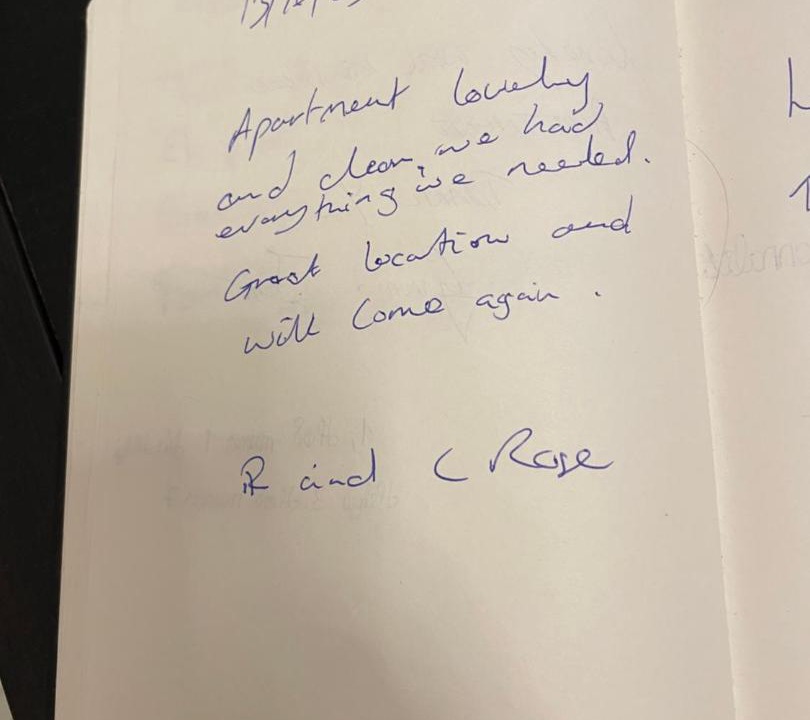 Apartment lovely
and clean, we had
everything we needed.
Great location and
will come again.
R and C Rose